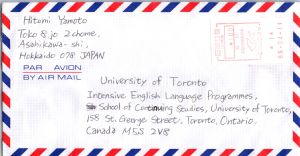 Hitomi Yamoto
Toko 8 jo 2 chome,
Asahikawa-shi,
Hokkaido 078 JAPAN
PAR AVION
BY AIR MAIL
University of Toronto
Intensive English Language Programmes,
School of Continuing Studies, University of Toronto,
158 St. George Street, Toronto, Ontario.
Canada M5S 2V8